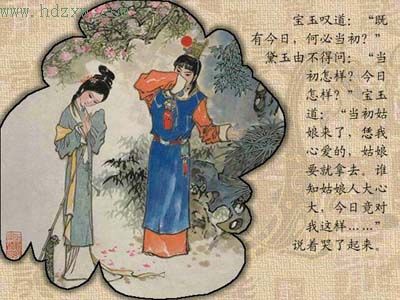 www.hdzxw.com
宝玉叹道：“既
有今日，何必当初？”
黛玉由不得问：“当
初怎样？今日
怎样？”宝玉
道：“当初姑
娘来了，凭我
心爱的，姑娘
要就拿去。谁
知姑娘人大心
大，今日竟对
我这样……”
说着哭了起来。